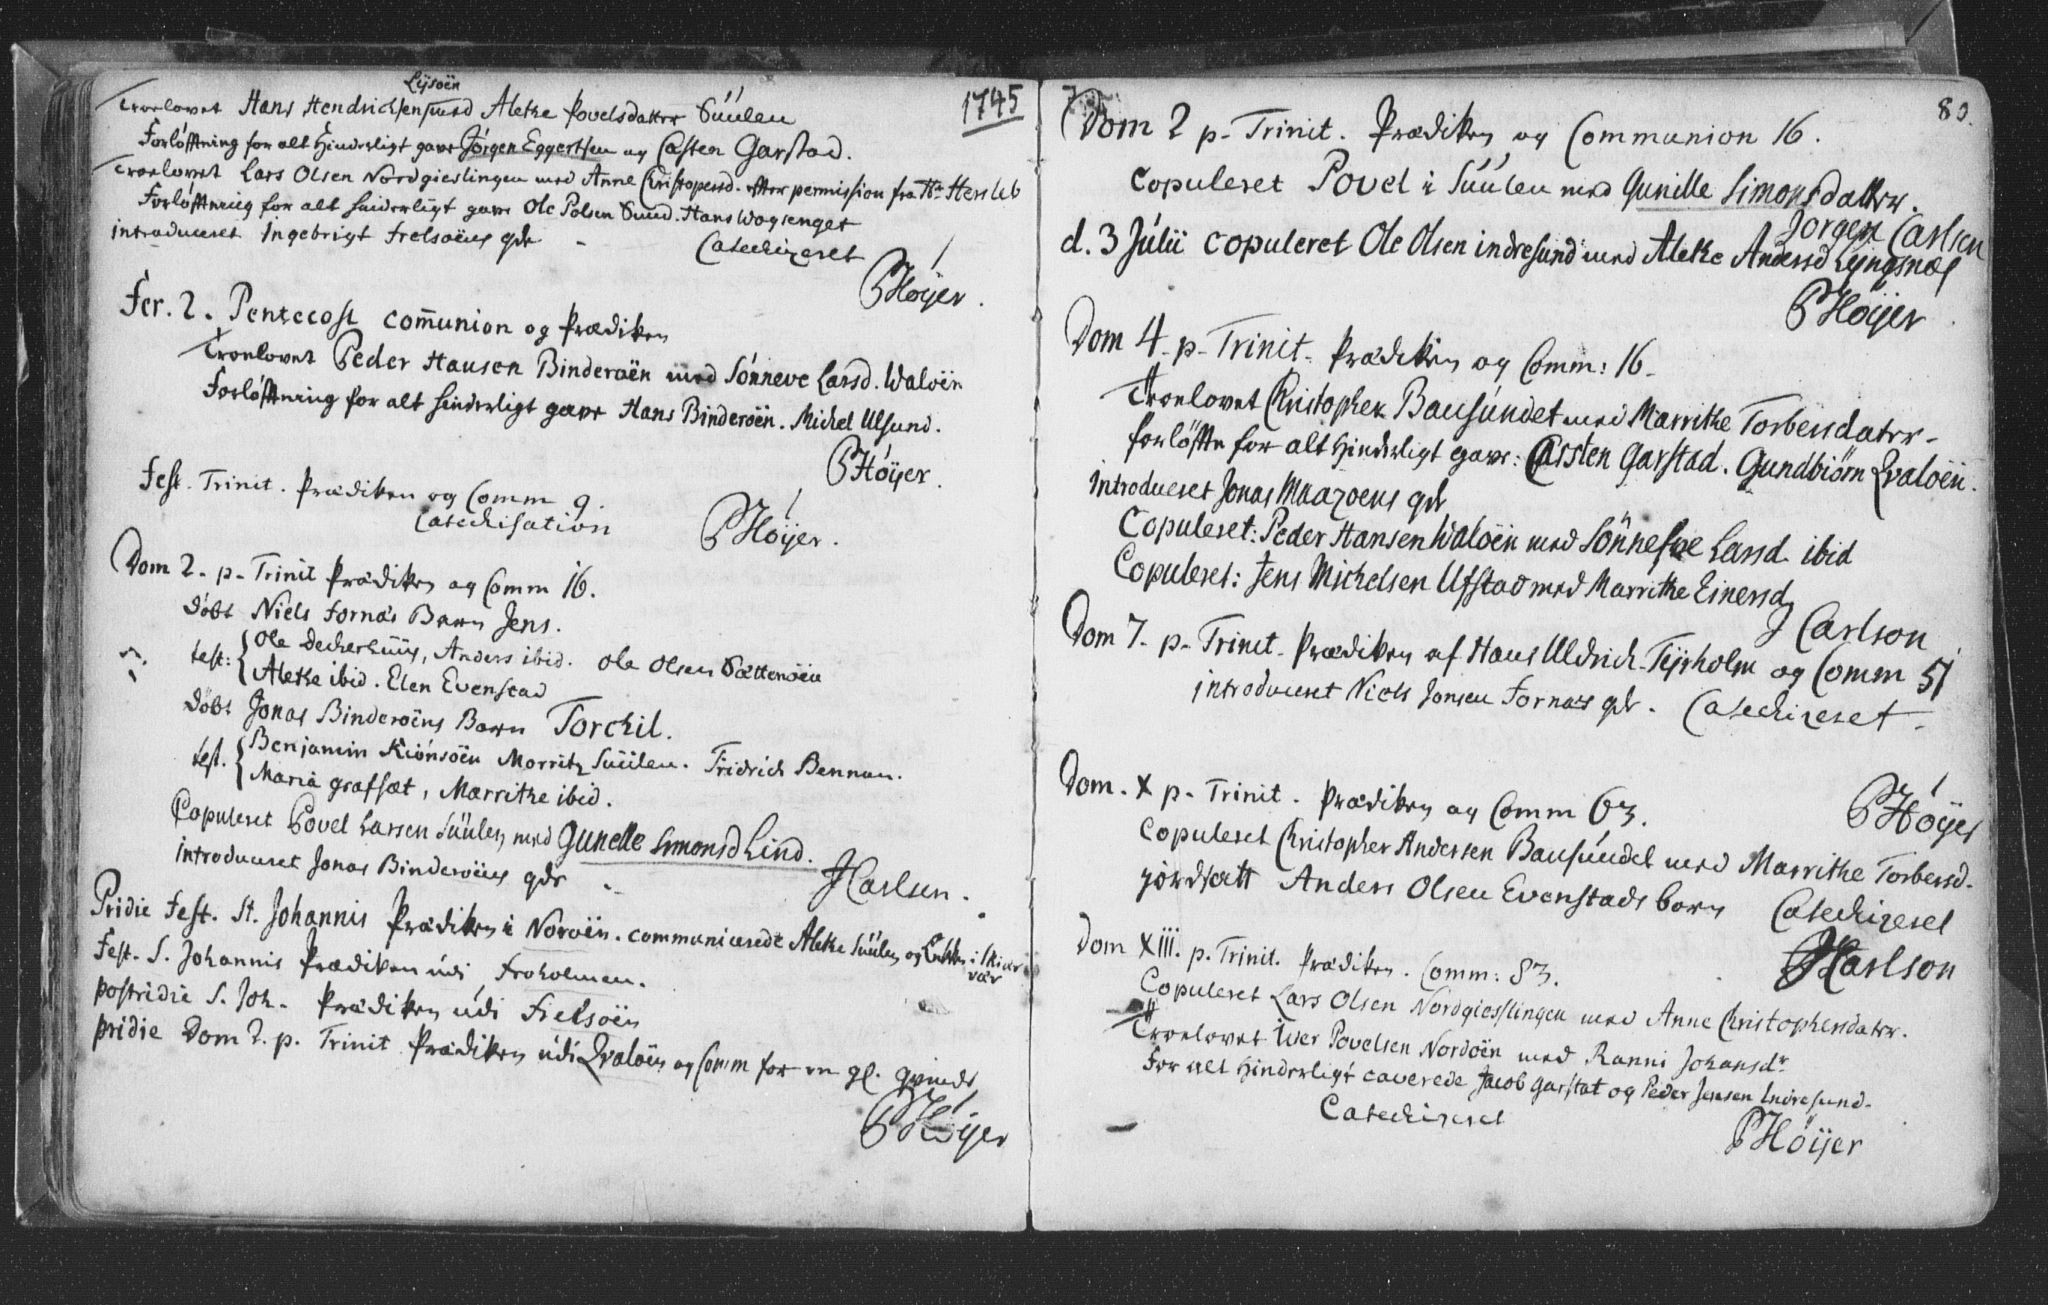 1745
Lysøen
Troelovet Hans Hendrichsen med Aletke Povelsdatter Süülen
Forløfftning for alt Hinderligt gave Jørgen Eggertsen og Casten Garstad.
Troelovet Lars Olsen Nordgieslingen med Anne Christopersd. efter permission fra Hr Hersleb
Forløfftning for alt hinderligt gave Ole Polsen Sund. Hans Wogsenget
introduceret Ingebrigt Frelsøens qde
Catechizeret
PHøÿer.
Fer. 2. Pentecost com̄union og Prædiken
Troelovet Peder Hansen Binderøen med Sønneve Larsd. Waløen
Forløfftning for alt hinderligt gave Hans Binderøen. Michel Ulsund.
PHøÿer.
Fest. Trinit. Prædiken og Comm 9.
Catechisation
PHøÿer.
Dom 2. p. Trinit Prædiken og Comm 16.
døbt Niels Fornæs Barn Jens.
test: Ole Deckerhuus, Anders ibid. Ole Olsen Sættersøen
Aletke ibid. Elen Evenstad
døbt Jonas Binderøens Barn Torchil.
test. Benjamin Kiönsöen Morritz Süülen. Fridrich Bennan.
Maria grafsæt, Marrithe ibid.
Copuleret Povel Larsen Süülen med Gunelle Simonsd Lind.
introduceret Jonas Binderøens qde
JCarlsen.
Pridie Fest. St. Johannis Prædiken i Norøen. communicerede Aletke Süülen og i Skier
vær
Fest. S. Johannis Prædiken udi Froholmen.
postridie S. Joh. Prædiken udi Fielsøen
pridie Dom 2. p. Trinit Prædiken udi Qvaløen og Comm for en gl. qvinde
PHøÿer
83.
Dom 2 p. Trinit. Prædiken og Communion 16.
Copuleret Povel i Süülen med Gunille Simonsdatter.
Jørgen Carlsen
d. 3 Julii copuleret Ole Olsen indresund med Aletke Andersd Lyngsnæs
PHøÿer
Dom 4. p. Trinit. Prædiken og Comm: 16.
Troelovet Christopher Bausundet med Marrithe Torbersdatter.
forløfte for alt Hinderligt gave: Carsten Garstad. Gundbiørn Qvaløen.
introduceret Jonas Maazoens qde
Copuleret: Peder Hansen Waløen med Sönnefve Larsd. ibid
Copuleret: Jens Michelsen Ufstad med Marrithe Einersd
J Carlson
Dom 7. p. Trinit. Prædiken af Hans Uldrich Tyrholm og Comm 51
introduceret Niels Jonsen Fornæs qde. Catechizeret.
PHøÿer
Dom. X p. Trinit. Prædiken og Comm 63.
Copuleret Christopher Andersen Bausundet med Marrithe Torbersd.
jordsatt Anders Olsen Evenstads barn Catechizeret
JCarlson
Dom XIII. p. Trinit. Prædiken. Comm: 83.
Copuleret Lars Olsen Nordgiesslingen med Anne Christophersdatter.
Troelovet Iver Povelsen Nordøen med Ranni Johansdr
For alt Hinderligt caverede Jacob Garstat og Peder Jensen Indresund.
Catechizeret
PHøÿer